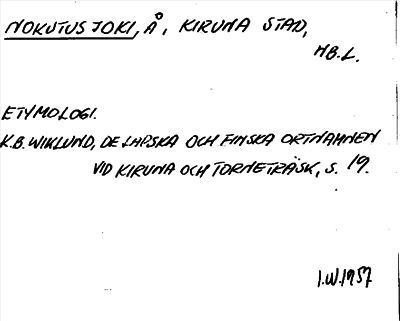 NOKUTUSJOKI, Å, KIRUNA STAD,
NB.L.
ETYMOLOGI.
K.B. WIKLUND, DE LAPSKA OCH FINSKA ORTNAMNEN
VID KIRUNA OCH TORNETRÄSK, S. 19.
I.W. 1957